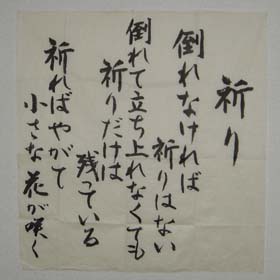 祈り
倒れなければ
祈りはない
倒れて立ち上れなくても
祈りだけは
残っている
祈ればやがて
小さな花が咲く